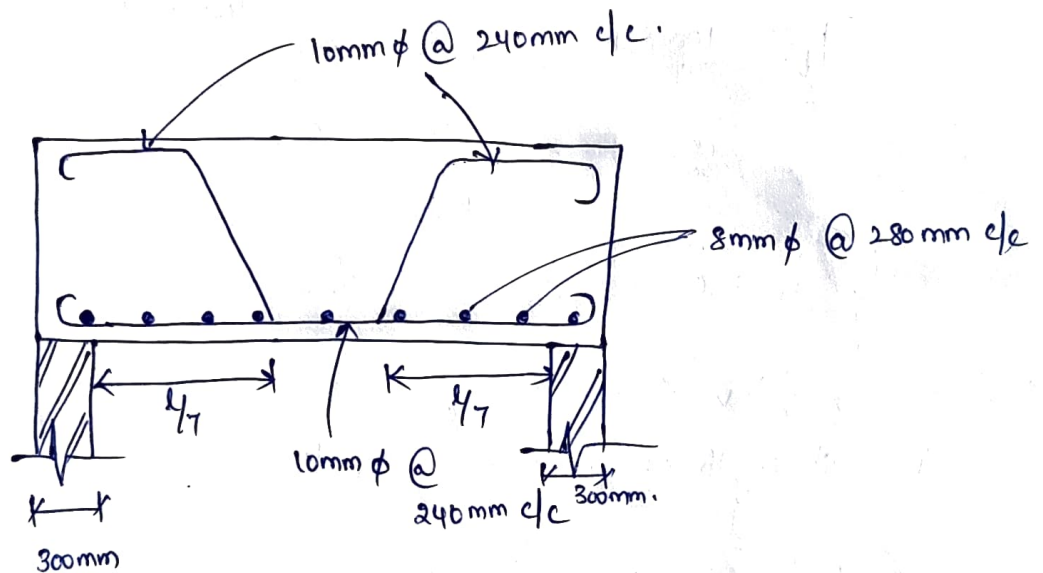 10mm ϕ @ 240mm c/c.
8mm ϕ @ 280mm c/c
l/7
l/7
10mm ϕ @
240mm c/c
300mm.
300mm